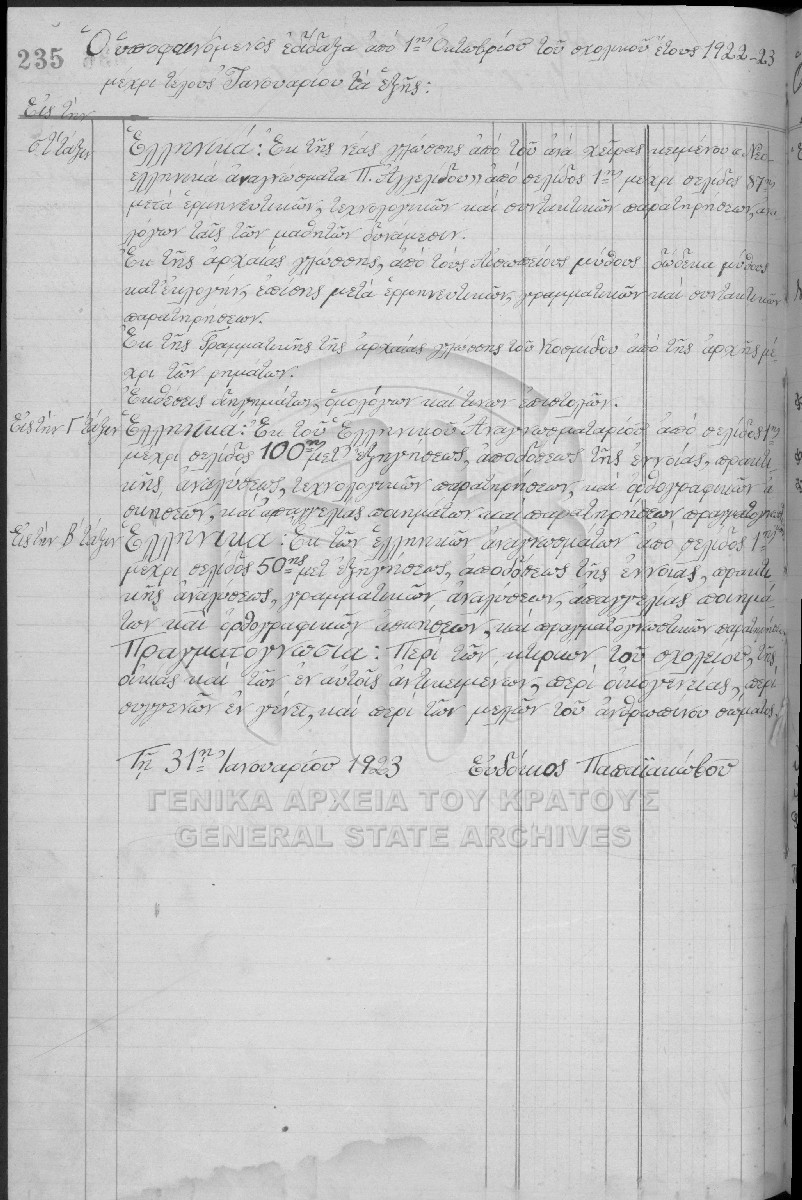 235
Ὁ ὑποφαινόμενος ἐδίδαξα ἀπό 1ης Ὀκτωβρίου τοῦ σχολικοῦ ἔτους 1922-23
μέχρι τέλους Ἰανουαρίου τά ἑξῆς:
Εἰς τήν
στ' τάξιν Ἑλληνικά: Ἐκ τῆς νέας γλώσσης ἀπό τοῦ ἀνά χεῖρας κειμένου « Νεο-
ελληνικά ἀναγνώσματα Π. » ἀπό σελίδος 1ης μέχρι σελίδος 87ης
μετά ἑρμηνευτικῶν, τεχνολογικῶν καί συντακτικῶν παρατηρήσεων, ἀνα-
λόγων ταῖς τῶν μαθητῶν δυνάμεσιν.
Ἐκ τῆς ἀρχαίας γλώσσης, ἀπό τούς Αἰσωπείους μύθους δώδεκα μύθους
κατ' ἐκλογήν, ἐπίσης μετά ἑρμηνευτικῶν, γραμματικῶν καί συντακτικῶν
παρατηρήσεων.
Ἐκ τῆς Γραμματικῆς τῆς ἀρχαίας γλώσσης τοῦ Κοσμίδου ἀπό τῆς ἀρχῆς μέ-
χρι τῶν ρημάτων.
Ἐκθέσεις διηγημάτων, ὁμολόγων καί τινων ἐπιστολῶν.
Εἰς τήν Γ' τάξιν Ἑλληνικά: Ἐκ τοῦ Ἑλληνικοῦ Ἀναγνωσματαρίου ἀπό σελίδος 1ης
μέχρι σελίδος 100ης μετ' ἐξηγήσεως, ἀποδόσεως τῆς ἐννοίας, πρακτι-
κῆς ἀναλύσεως, τεχνολογικῶν παρατηρήσεων, καί ὀρθογραφικῶν ἀ-
σκήσεων, καί ἀπαγγελίας ποιημάτων καί παρατηρήσεων πραγματογνωστ.
Εἰς τήν Β' τάξιν Ἑλληνικά: Ἐκ τῶν ἑλληνικῶν ἀναγνωσμάτων ἀπό σελίδος 1ης
μέχρι σελίδος 50ης μετ' ἐξηγήσεως, ἀποδόσεως τῆς ἐννοίας, πρακτι-
κῆς ἀναλύσεως, γραμματικῶν ἀναλύσεων, ἀπαγγελίας ποιημά-
των καί ὀρθογραφικῶν ἀσκήσεων, καί πραγματογνωστικῶν παρατηρήσεων.
Πραγματογνωσία: Περί τῶν κτιρίων τοῦ σχολείου, τῆς
οἰκίας καί τῶν ἐν αὐτοῖς ἀντικειμένων, περί οἰκογενείας, περί
συγγενῶν ἐν γένει, καί περί τῶν μελῶν τοῦ ἀνθρωπίνου σώματος.
Τῇ 31ῃ Ἰανουαρίου 1923 Εὐδόκιος Παπαϊακώβου
ΓΕΝΙΚΑ ΑΡΧΕΙΑ ΤΟΥ ΚΡΑΤΟΥΣ
GENERAL STATE ARCHIVES